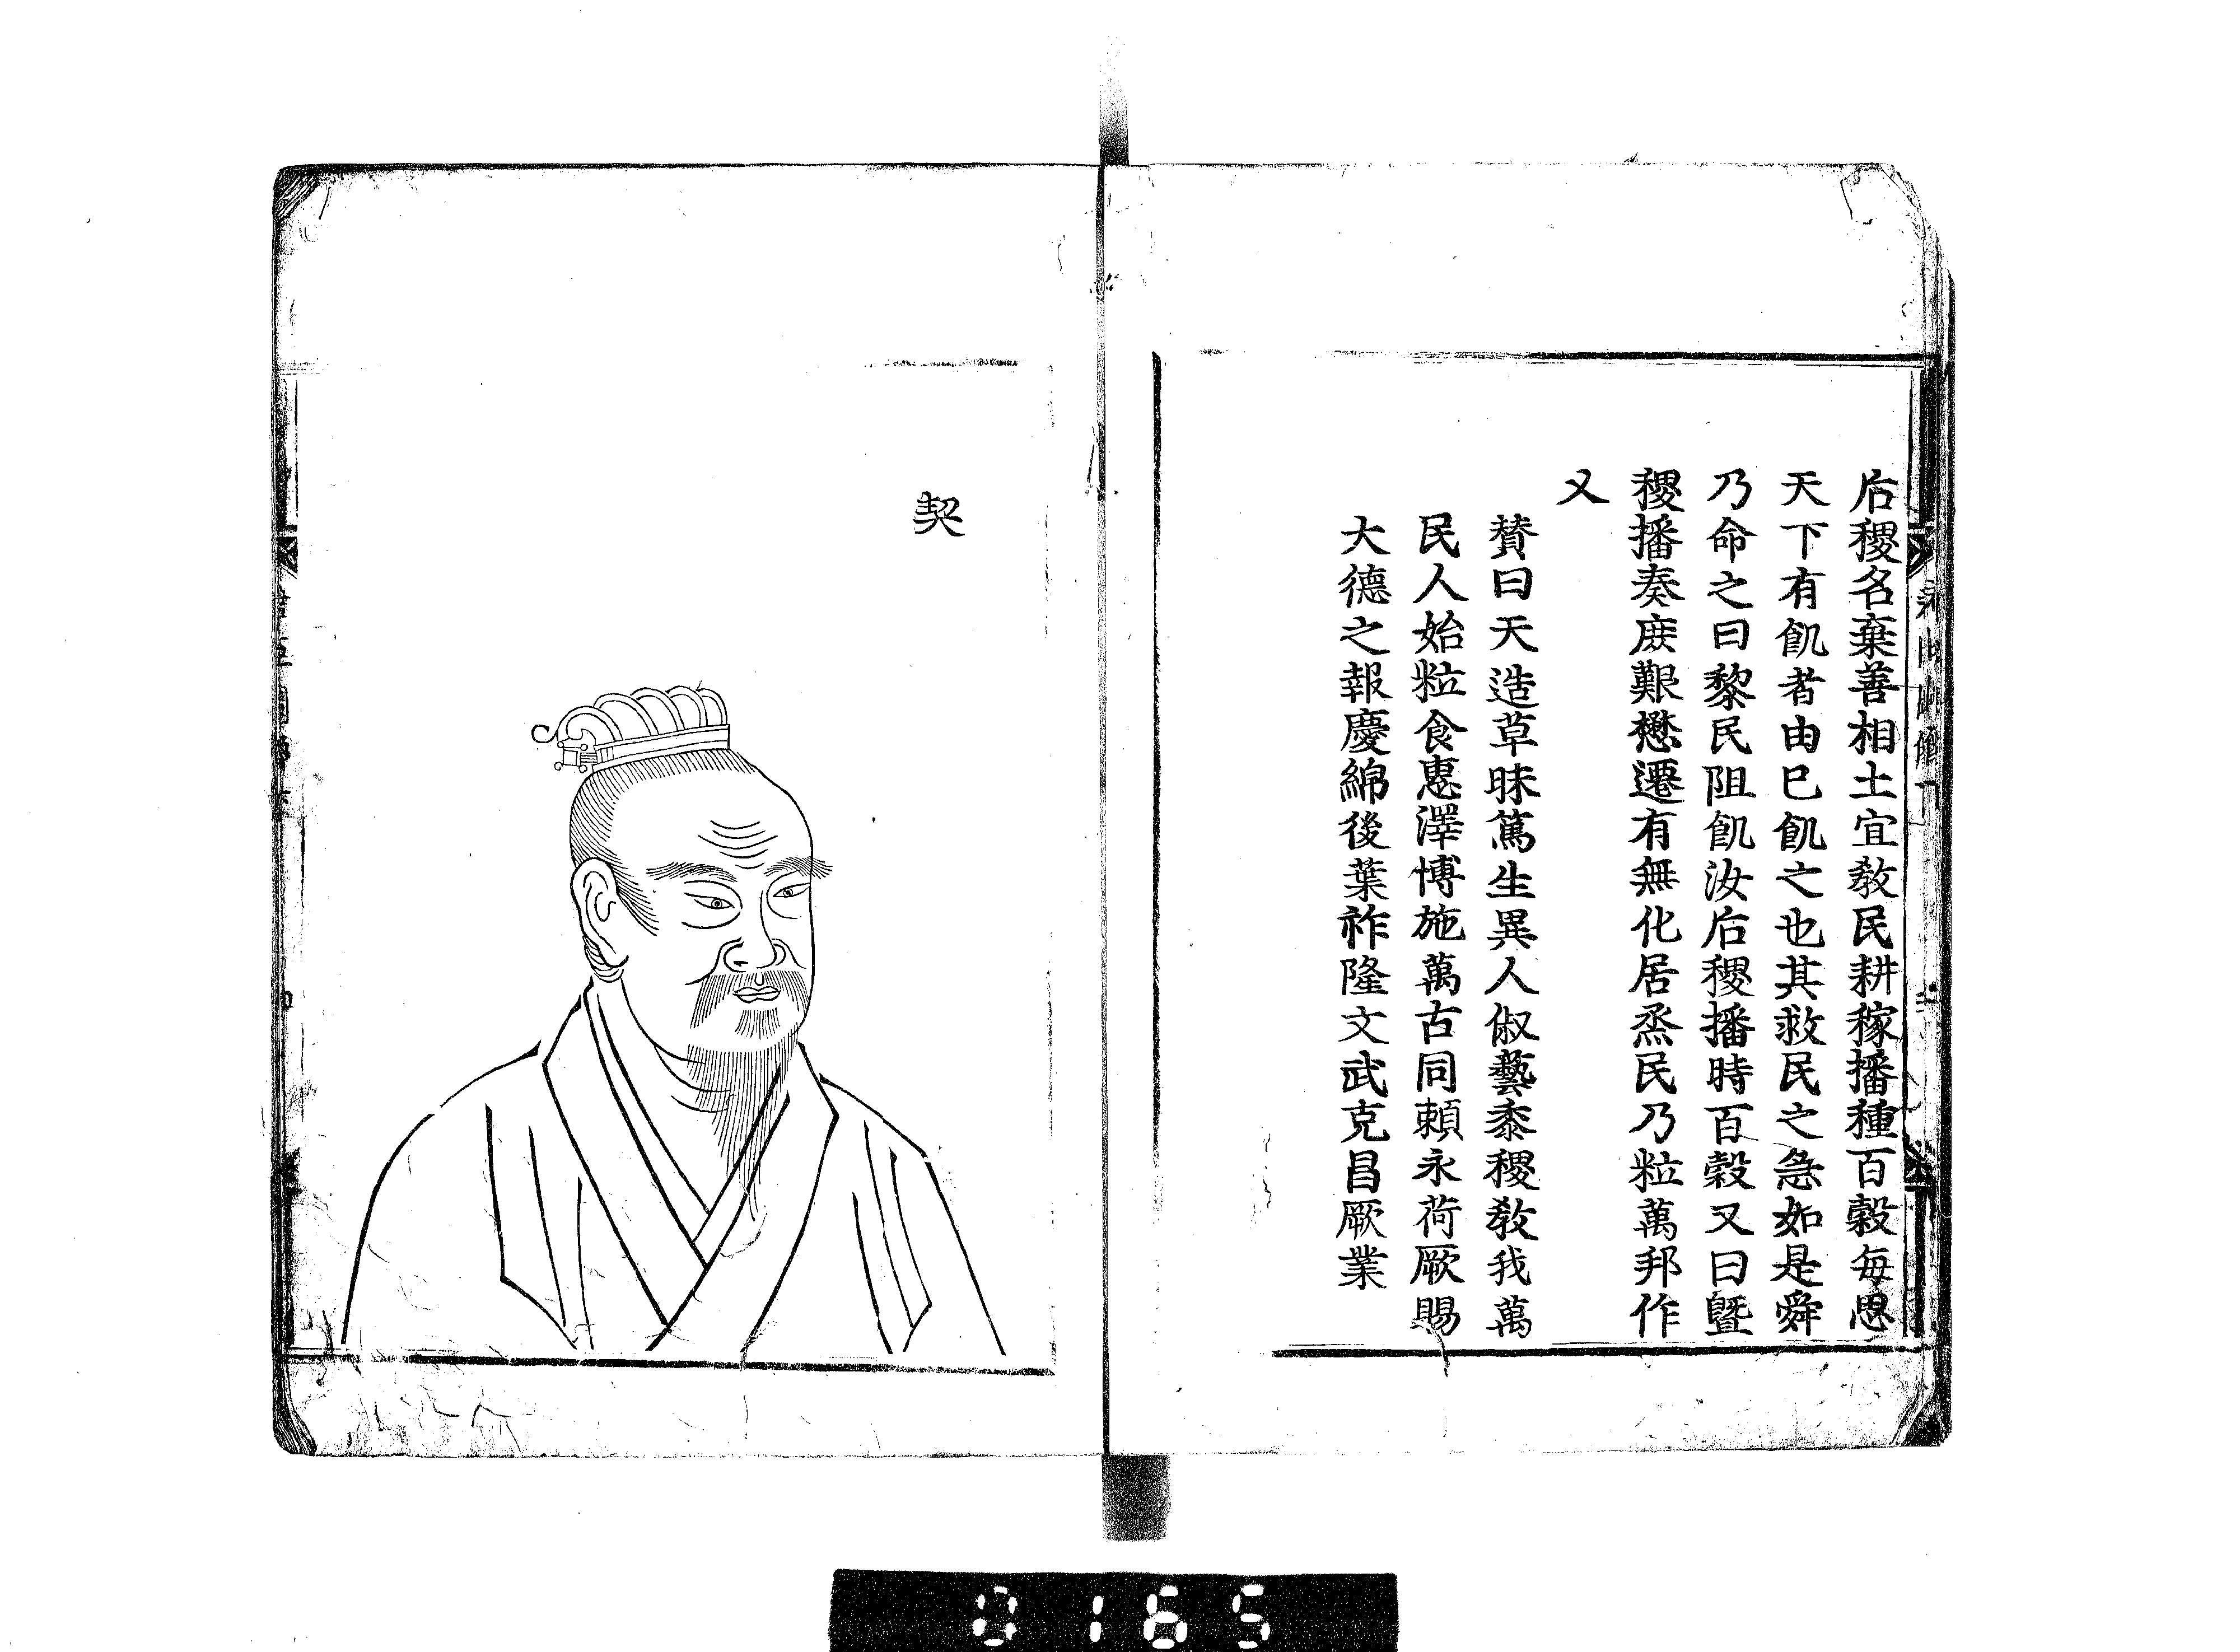 后稷名棄善相土宜敎民耕稼播種百穀每思
天下有飢者由已飢之也其救民之急如是舜
乃命之曰黎民阻飢汝后稷播時百穀又曰曁
稷播奏庻艱懋遷有無化居烝民乃粒萬邦作
乂
賛曰天造草昧篤生異人俶藝黍稷敎我萬
民人始粒食惠澤博施萬古同頼永荷厥賜
大德之報慶綿後葉祚隆文武克昌厥業
契
0165